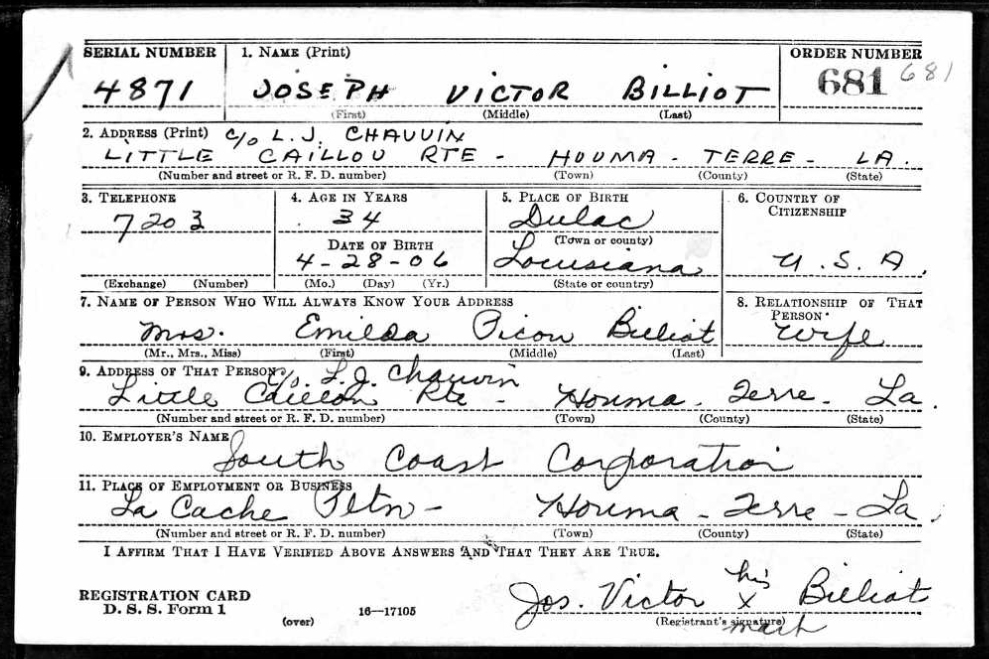 SERIAL NUMBER 1. NAME (Print) ORDER NUMBER
4871 JOSEPH VICTOR BILLIOT 681 681
(First) (Middle) (Last)
2. ADDRESS (Print) c/o L. J. CHAUVIN
LITTLE CAILLOU RTE - HOUMA - TERRE - LA.
(Number and street or R. F. D. number) (Town) (County) (State)
3. TELEPHONE 4. AGE IN YEARS 5. PLACE OF BIRTH 6. COUNTRY OF
CITIZENSHIP
7203 34 Dulac
DATE OF BIRTH (Town or county)
4-28-06 Louisiana U.S.A.
(Exchange) (Number) (Mo.) (Day) (Yr.) (State or country)
7. NAME OF PERSON WHO WILL ALWAYS KNOW YOUR ADDRESS 8. RELATIONSHIP OF THAT
PERSON
Mrs. Emilda Picou Billiot Wife
(Mr., Mrs., Miss) (First) (Middle) (Last)
9. ADDRESS OF THAT PERSON c/o L.J. Chauvin
Little Caillou Rte - Houma - Terre - La.
(Number and street or R. F. D. number) (Town) (County) (State)
10. EMPLOYER'S NAME
South Coast Corporation
11. PLACE OF EMPLOYMENT OR BUSINESS
La Cache Pltn - Houma - Terre - La.
(Number and street or R. F. D. number) (Town) (County) (State)
I AFFIRM THAT I HAVE VERIFIED ABOVE ANSWERS AND THAT THEY ARE TRUE.
REGISTRATION CARD
D. S. S. Form 1 16—17105
(over)
his
Jos. Victor X Billiot
(Registrant's signature)
mark